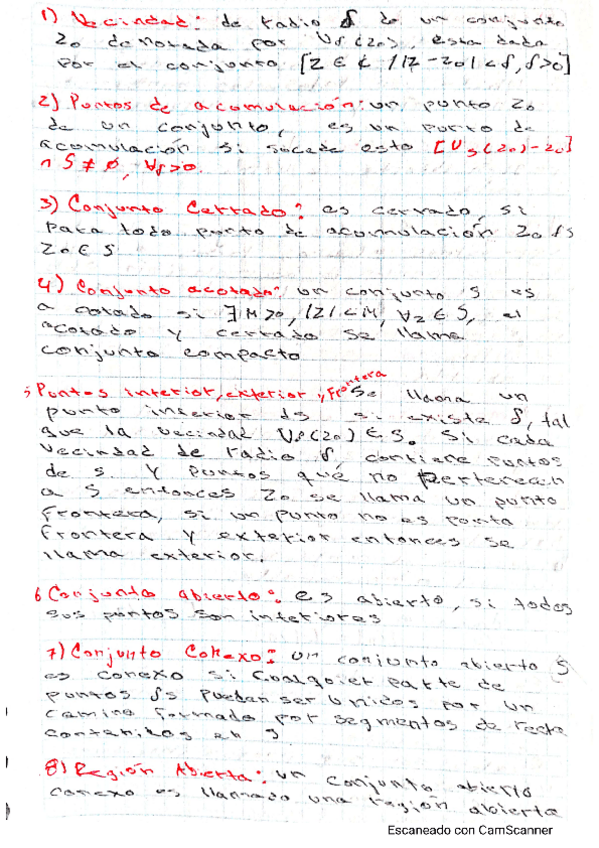 1) Vecindad: de radio δ de un conjunto
Zo denotada por Uδ(Zo), esta dada
por el conjunto [Z ∈ ₵ / |Z - Zo| < δ, δ>0]
2) Puntos de acumulación: un punto Zo
de un conjunto, es un punto de
acumulación si sucede esto [Uδ(Zo) - Zo]
∩ S ≠ ∅, ∀δ>0.
3) Conjunto Cerrado: es cerrado, si
para todo punto de acumulación Zo δs
Zo ∈ S
4) Conjunto acotado: un conjunto S es
acotado si ∃ M>0, |Z| < M, ∀z ∈ S, el
acotado y cerrado se llama
conjunto compacto
5 Puntos interior, exterior y Frontera Se llama un
punto interior ds si existe δ, tal
que la vecindad Uδ(Zo) ∈ S. Si cada
vecindad de radio δ, contiene puntos
de s. Y puntos que no pertenecen
a S entonces Zo se llama un punto
frontera, si un punto no es punto
frontera y exterior entonces se
llama exterior.
6 Conjunto abierto: es abierto, si todos
sus puntos son interiores
7) Conjunto Conexo: un conjunto abierto S
es conexo si cualquier parte de
puntos δs puedan ser unidos por un
camino formado por segmentos de recta
contenidos en S
8) Región Abierta: un conjunto abierto
conexo es llamado una región abierta
Escaneado con CamScanner